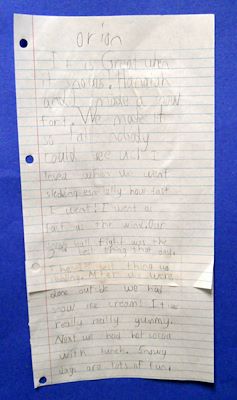 orion
It is Great when
it snows! Hannah
and I made a snow
fort. We made it
so tall nobody
could see us! I
loved when we went
sledding especially how fast
I went! I went as
fast as the wind. Our
snow ball fight was the
2 best thing that day.
The 1 best thing
After we were
done outside we had
snow ice cream! It was
really really yummy.
Next we had hot cocoa
with lunch. Snowy
days are lots of fun.